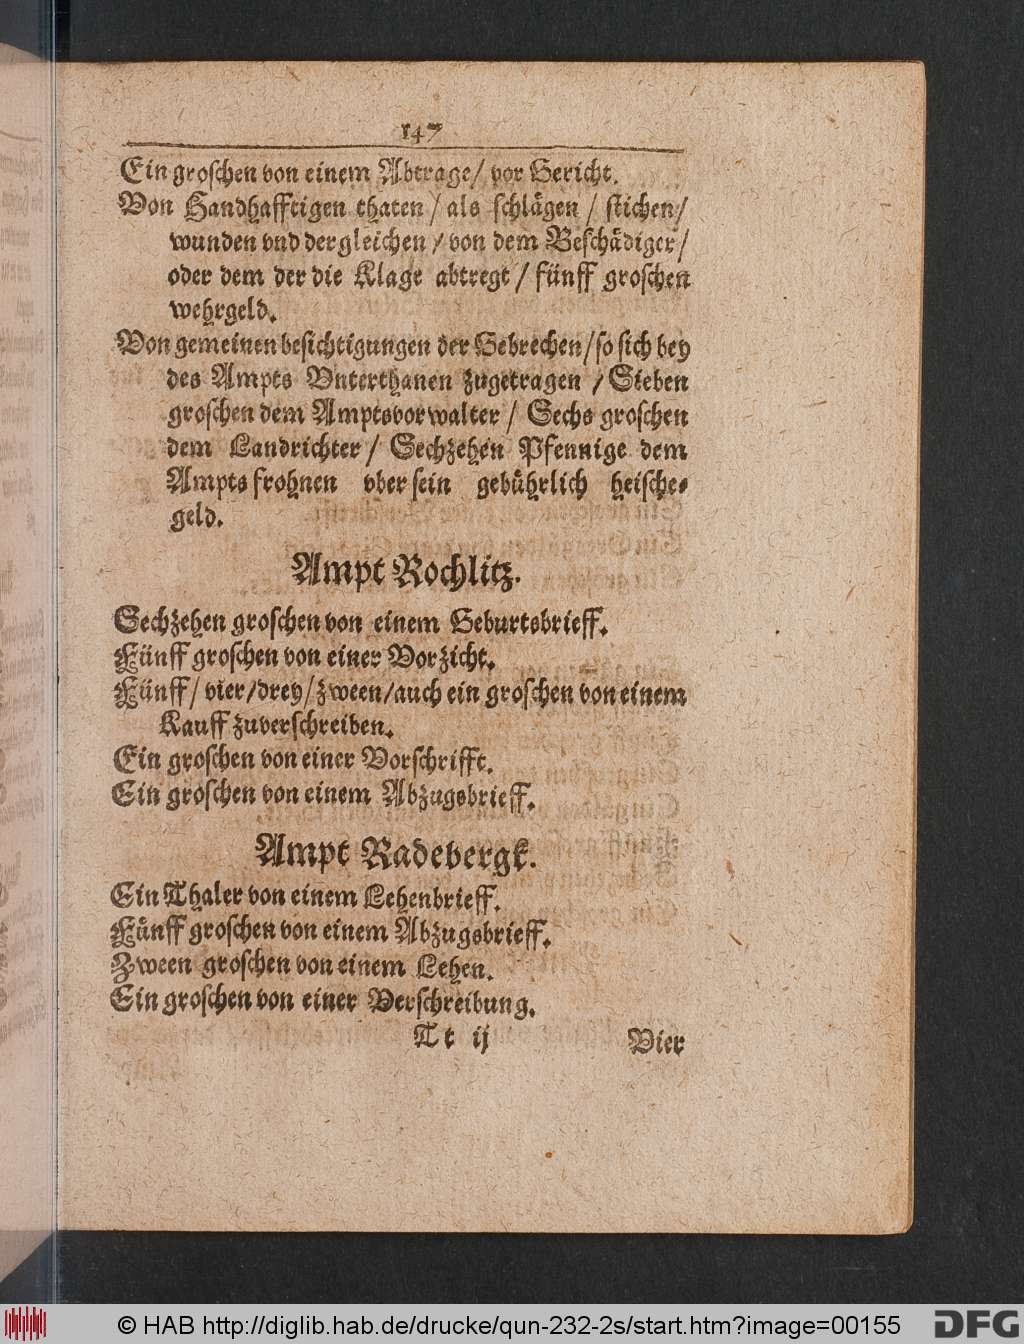 147
Ein groschen von einem Abtrage / vor Gericht.
Von Handhafftigen thaten / als schlägen / stichen /
wunden vnd dergleichen / von dem Beschädiger /
oder dem der die Klage abtregt / fünff groschen
wehrgeld.
Von gemeinen besichtigungen der Gebrechen / so sich bey
des Ampts Vnterthanen zugetragen / Sieben
groschen dem Amptsvorwalter / Sechs groschen
dem Landrichter / Sechzehen Pfennige dem
Ampts frohnen vber sein gebührlich heische-
geld.
Ampt Rochlitz.
Sechzehen groschen von einem Geburtsbrieff.
Fünff groschen von einer Vorzicht.
Fünff / vier / drey / zween / auch ein groschen von einem
Kauff zuverschreiben.
Ein groschen von einer Vorschrifft.
Ein groschen von einem Abzugsbrieff.
Ampt Radebergk.
Ein Thaler von einem Lehenbrieff.
Fünff groschen von einem Abzugsbrieff.
Zween groschen von einem Lehen.
Ein groschen von einer Verschreibung.
Tt ij Vier
© HAB http://diglib.hab.de/drucke/qun-232-2s/start.htm?image=00155
DFG